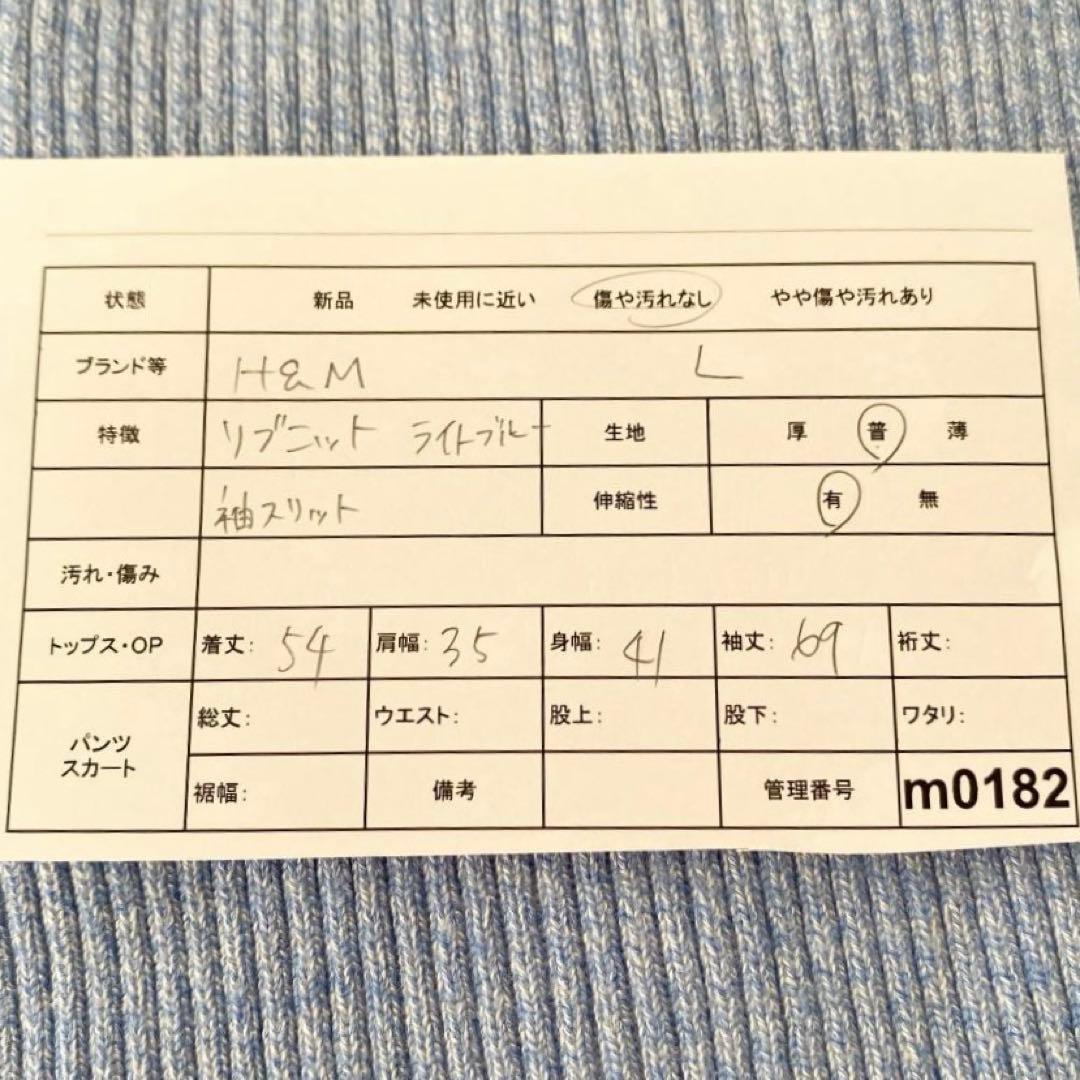 状態 新品 未使用に近い 傷や汚れなし やや傷や汚れあり
ブランド等 H&M L
特徴 リブニット ライトブルー 生地 厚 普 薄
袖スリット 伸縮性 有 無
汚れ・傷み
トップス・OP 着丈: 54 肩幅: 35 身幅: 41 袖丈: 69 裄丈:
パンツ
スカート
総丈: ウエスト: 股上: 股下: ワタリ:
裾幅: 備考 管理番号 m0182